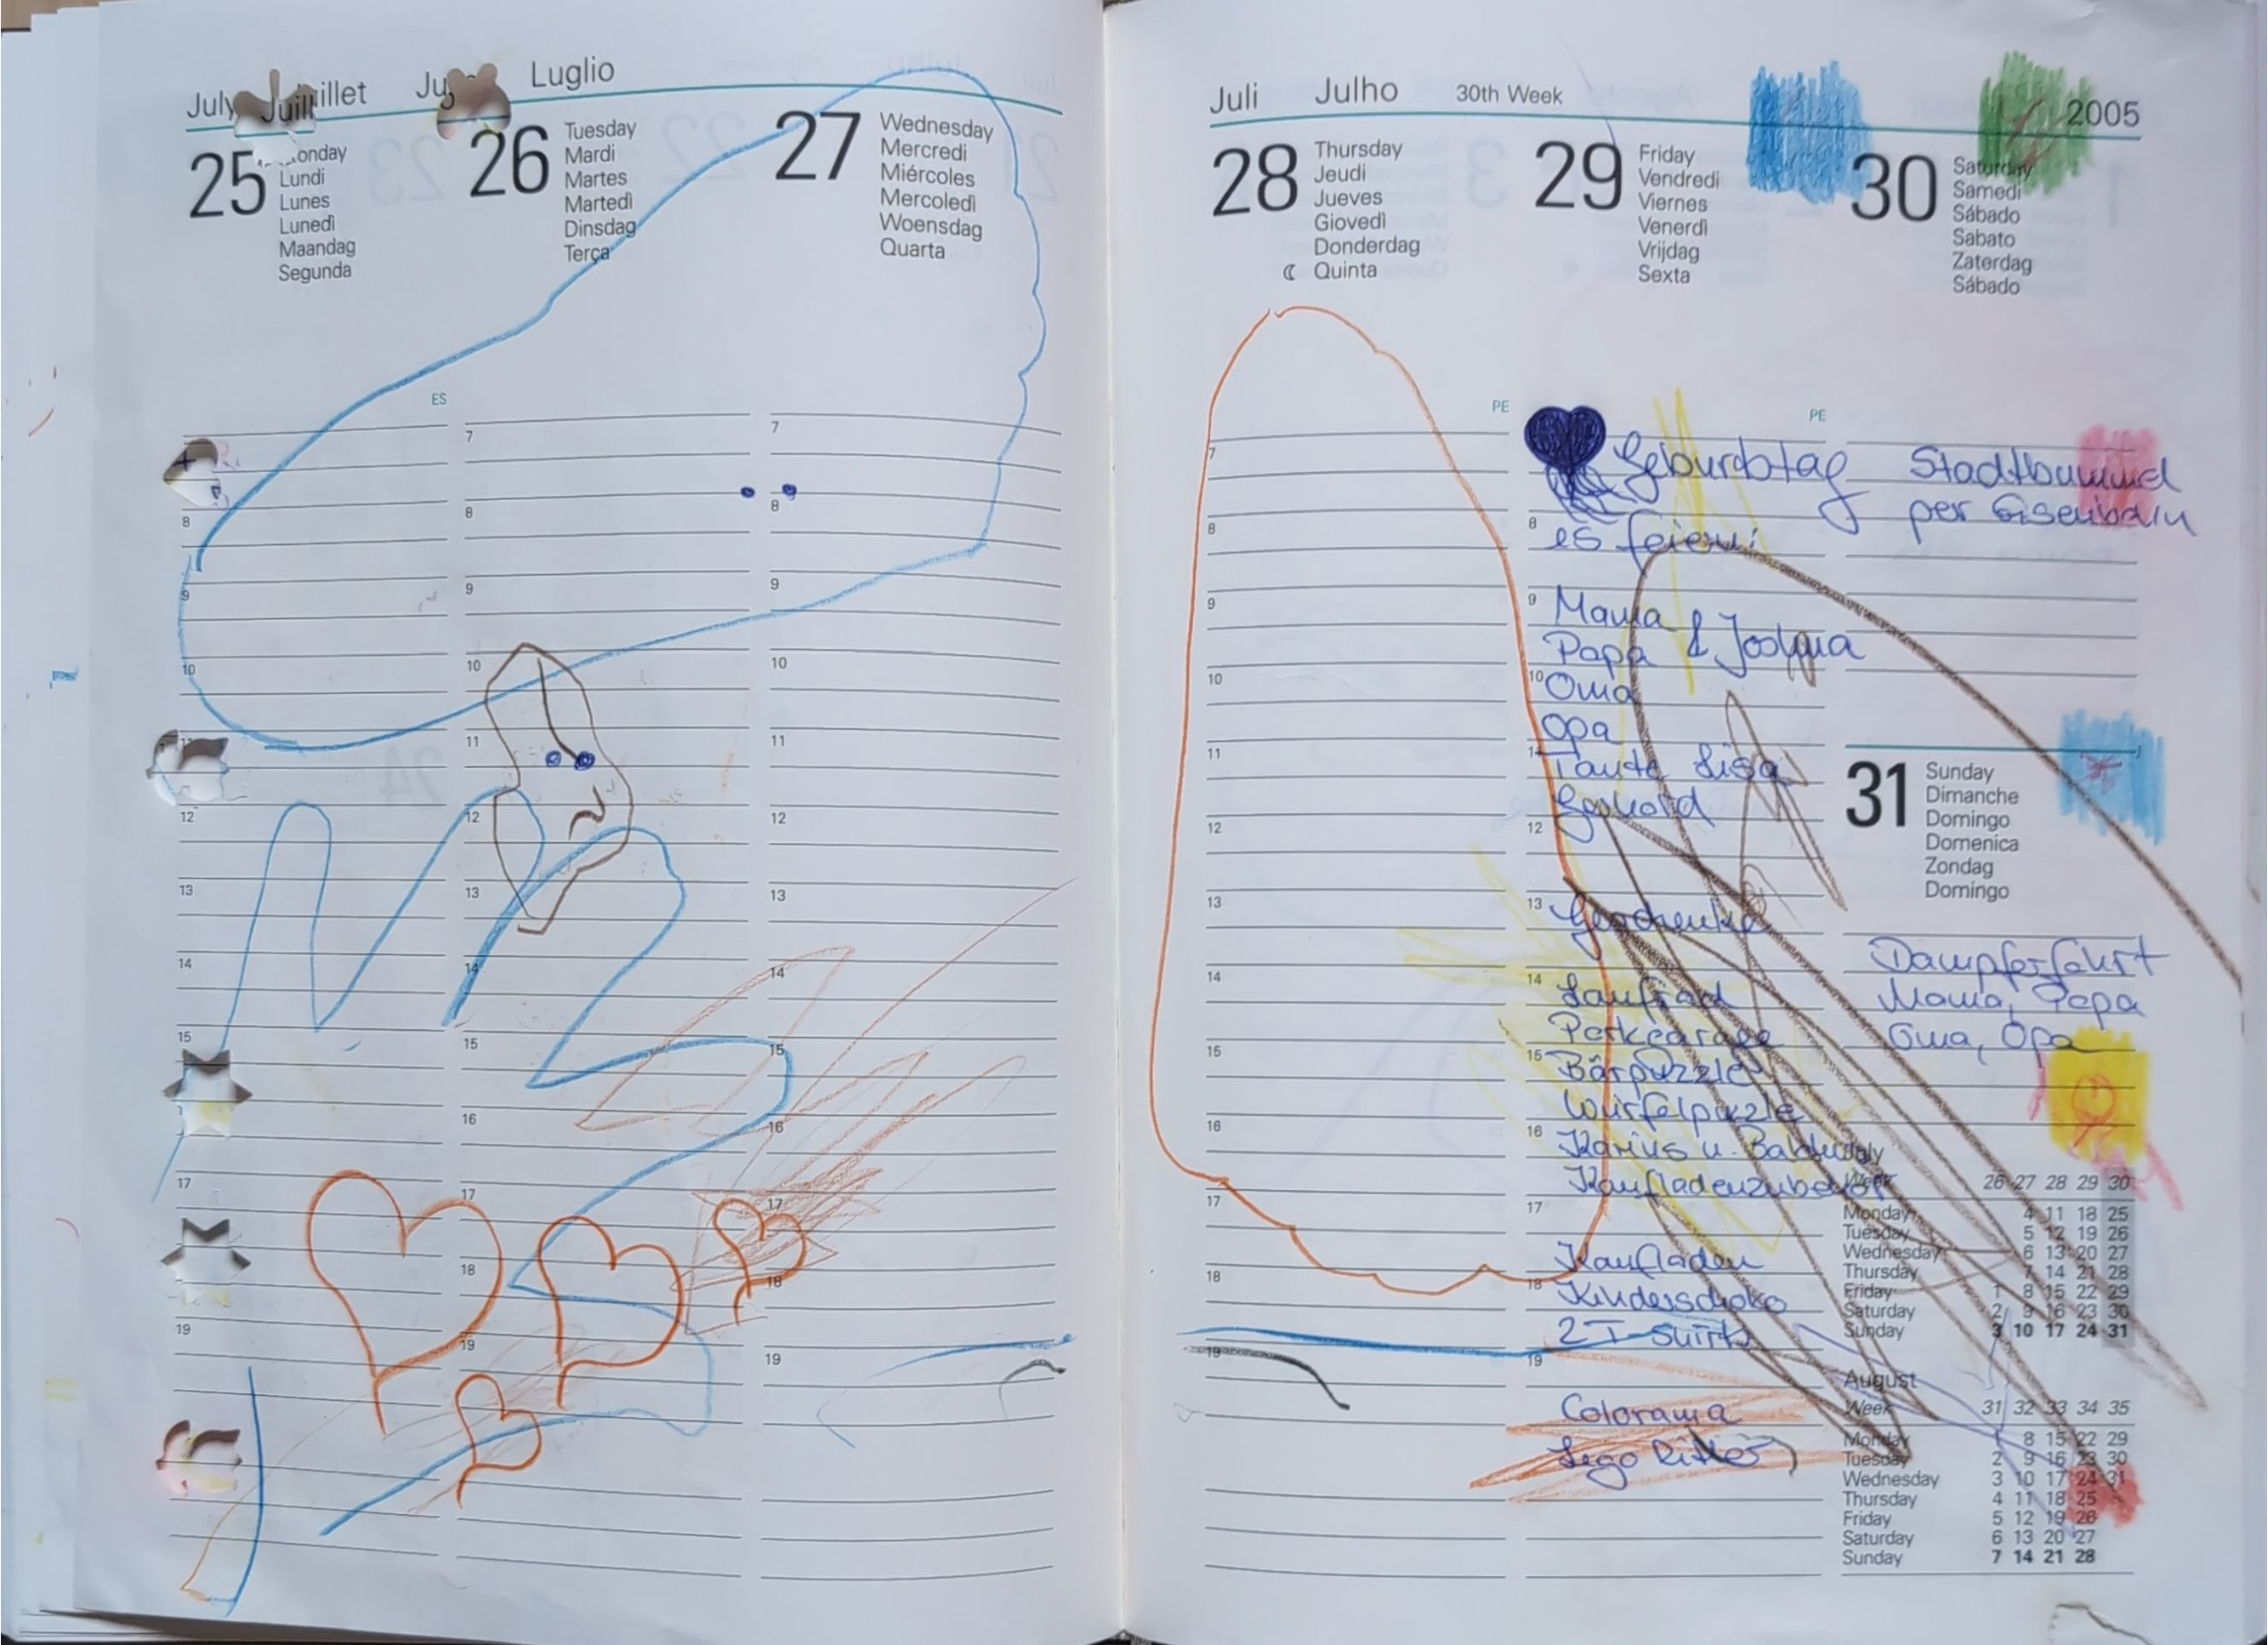 July Juillet Ju Luglio
25
Monday
Lundi
Lunes
Lunedì
Maandag
Segunda
26
Tuesday
Mardi
Martes
Martedì
Dinsdag
Terça
27
Wednesday
Mercredi
Miércoles
Mercoledì
Woensdag
Quarta
ES
7
8
9
10
11
12
13
14
15
16
17
18
19
7
8
9
10
11
12
13
14
15
16
17
18
19
Juli Julho 30th Week 2005
28
Thursday
Jeudi
Jueves
Giovedì
Donderdag
Quinta
29
Friday
Vendredi
Viernes
Venerdì
Vrijdag
Sexta
30
Saturday
Samedi
Sábado
Sabato
Zaterdag
Sábado
PE
PE
7
8
9
10
11
12
13
14
15
16
17
18
19
Geburtstag
es feiern:
Mama
Papa & Joshua
Oma
Opa
Tante Lisa
Gerhard
Geschenke
Laufrad
Parkgarage
Bärpuzzle
Würfelpuzzle
Karius u.
Kaufladenzubehör
Kaufladen
Kinderschoko
2 T-Shirts
Colorama
Lego Ritter
Stadtbummel
per Eisenbahn
31
Sunday
Dimanche
Domingo
Domenica
Zondag
Domingo
Dampferfahrt
Mama, Papa
Oma, Opa
July
Week 26 27 28 29 30
Monday 4 11 18 25
Tuesday 5 12 19 26
Wednesday 6 13 20 27
Thursday 7 14 21 28
Friday 1 8 15 22 29
Saturday 2 9 16 23 30
Sunday 3 10 17 24 31
August
Week 31 32 33 34 35
Monday 1 8 15 22 29
Tuesday 2 9 16 23 30
Wednesday 3 10 17 24 31
Thursday 4 11 18 25
Friday 5 12 19 26
Saturday 6 13 20 27
Sunday 7 14 21 28